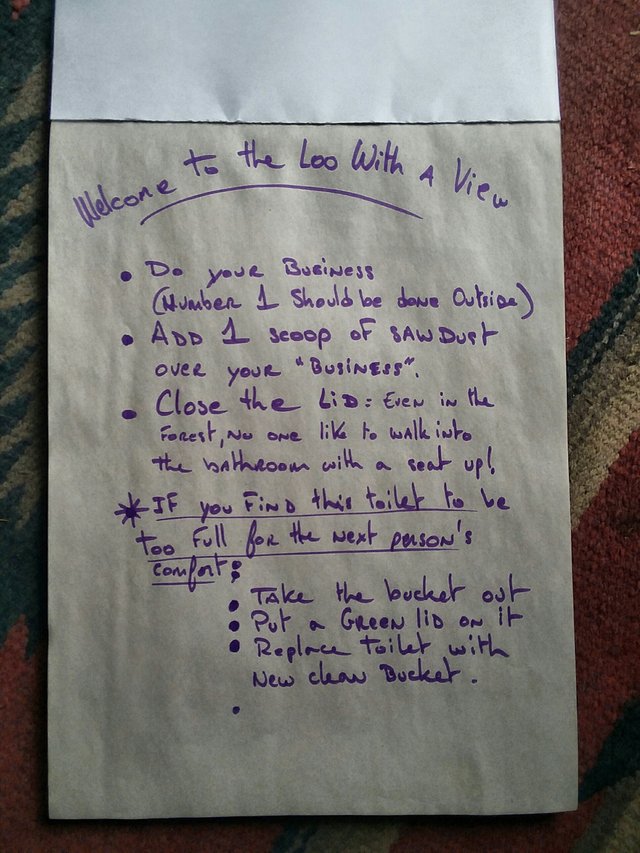 Welcome to the Loo With A View
• Do your Business
(Number 1 Should be done Outside)
• ADD 1 scoop of SAWDUST
over your "Business".
• Close the Lid: Even in the
Forest, No one like to walk into
the bathroom with a seat up!
* IF you Find this toilet to be
too full for the next person's
comfort:
• Take the bucket out
• Put a Green lid on it
• Replace toilet with
New clean Bucket.
•